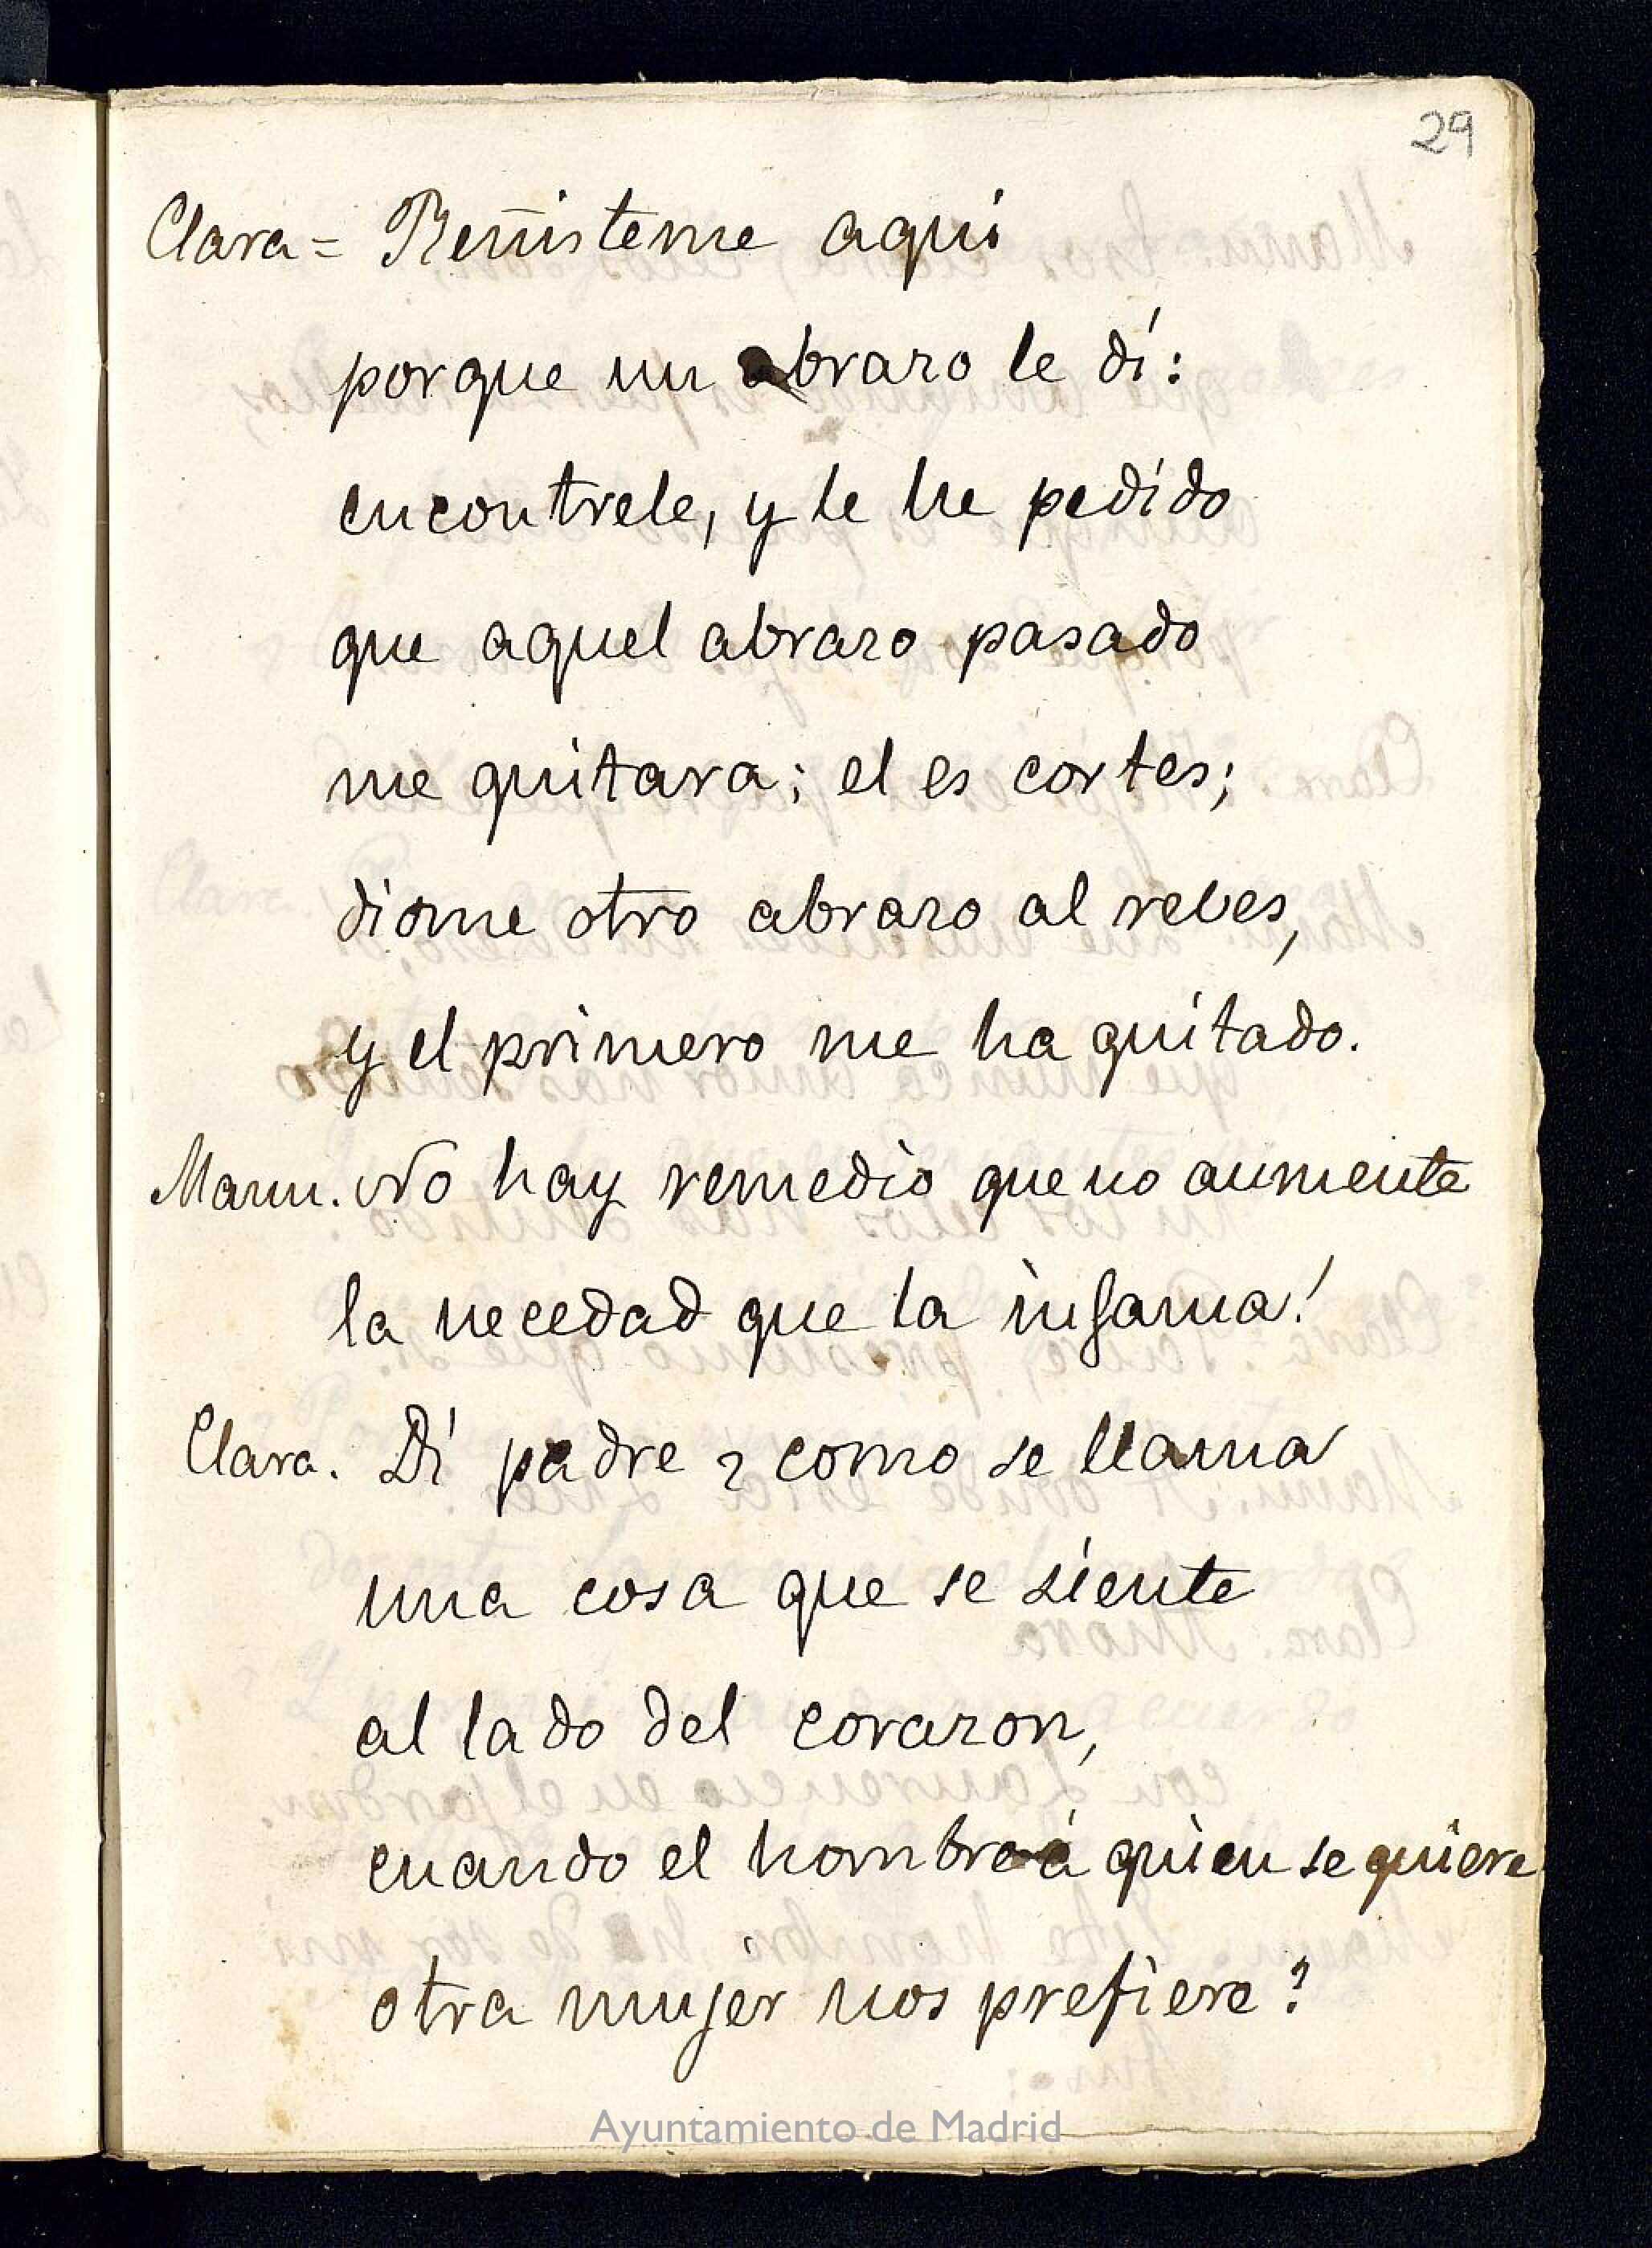 29
Clara = Reñisteme aqui
porque un abrazo le dí:
encontrele, y le he pedido
que aquel abrazo pasado
me quitara; el es cortes;
diome otro abrazo al rebes,
y el primero me ha quitado.
Manu. No hay remedio que no aumente
la necedad que la infama!
Clara. Di padre ¿ como se llama
una cosa que se siente
al lado del corazon,
cuando el hombre á quien se quiere
otra mujer nos prefiere?
Ayuntamiento de Madrid